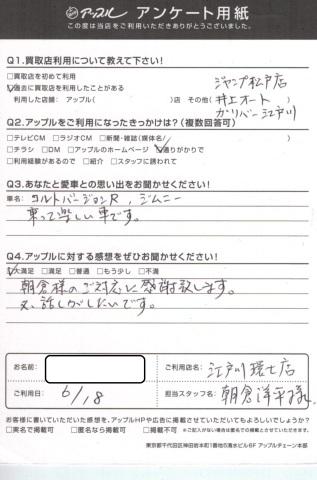 アップル アンケート用紙
この度は当店をご利用いただきありがとうございました。
Q1.買取店利用について教えて下さい!
□買取を初めて利用
☑過去に買取店を利用したことがある
利用した店舗: アップル( )店 その他(
ジャンプ松戸店
井上オート
ガリバー江戸川
Q2.アップルをご利用になったきっかけは?(複数回答可)
□テレビCM □ラジオCM □新聞・雑誌(媒体名/ )
□チラシ □DM □アップルのホームページ ☑通りがかりで
□利用経験があるので □紹介 □スタッフに誘われて
Q3.あなたと愛車との思い出をお聞かせください!
車名: コルトバージョンR, ジムニー
乗って楽しい車です。
Q4.アップルに対する感想をぜひお聞かせください!
☑大満足 □満足 □普通 □もう少し □不満
朝倉様のご対応に感謝致します。
又、話しがしたいです。
お名前:
ご利用店名: 江戸川瑞江店
ご利用日: 6/18
担当スタッフ名: 朝倉洋平様
お客様に書いていただいた感想を、アップルHPや広告に掲載させていただいてもよろしいでしょうか?
□実名で掲載可 □匿名なら掲載可 □掲載不可 ※ご記入がない場合は匿名での掲載とさせていただきます。
東京都千代田区神田岩本町1番地6清水ビル6F アップルチェーン本部